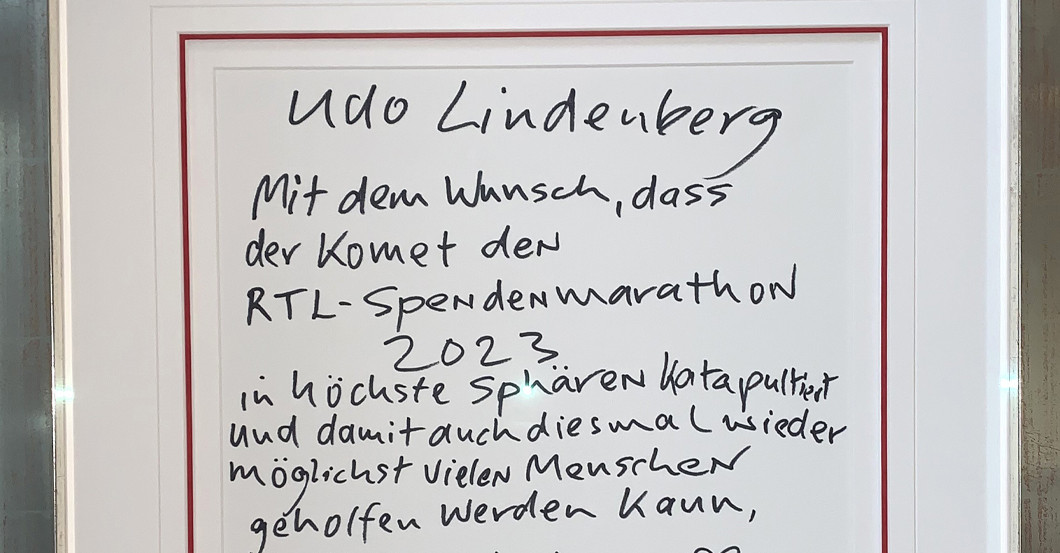 Udo Lindenberg
Mit dem Wunsch, dass
der Komet den
RTL-Spendenmarathon
2023
in höchste Sphären katapultiert
und damit auch diesmal wieder
möglichst vielen Menschen
geholfen werden kann,